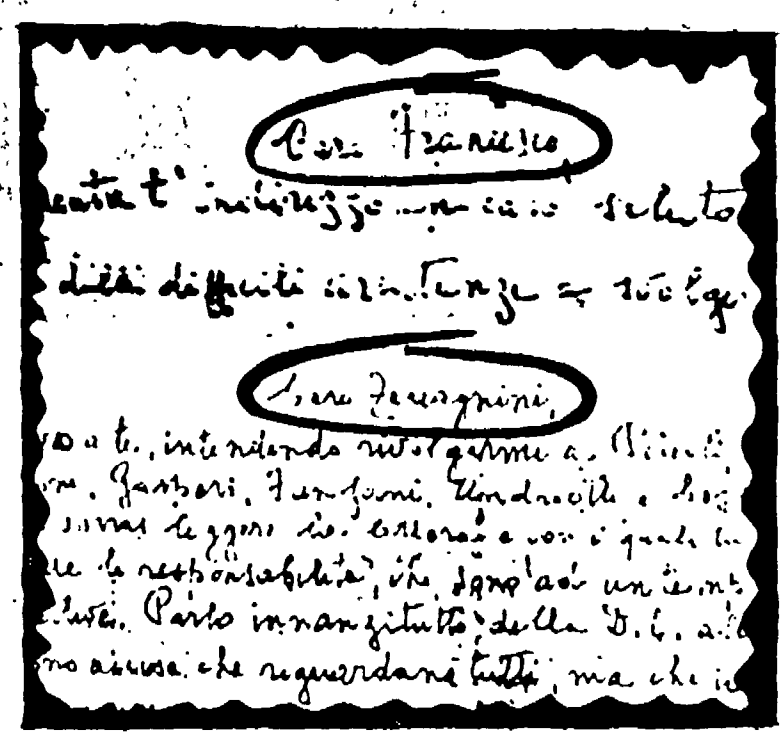 Caro Francesco,
mentre t'indirizzo un caro saluto
difficili circostanze a svolge
Caro Zaccagnini,
a te, intendendo rivolgermi a Piccoli,
Gaspari, Fanfani, Andreotti e
vorrai leggere la lettera e con i quali
le responsabilità, che sono ad un
Parlo innanzitutto della D.C. a
accuse che riguardano tutti, ma che io